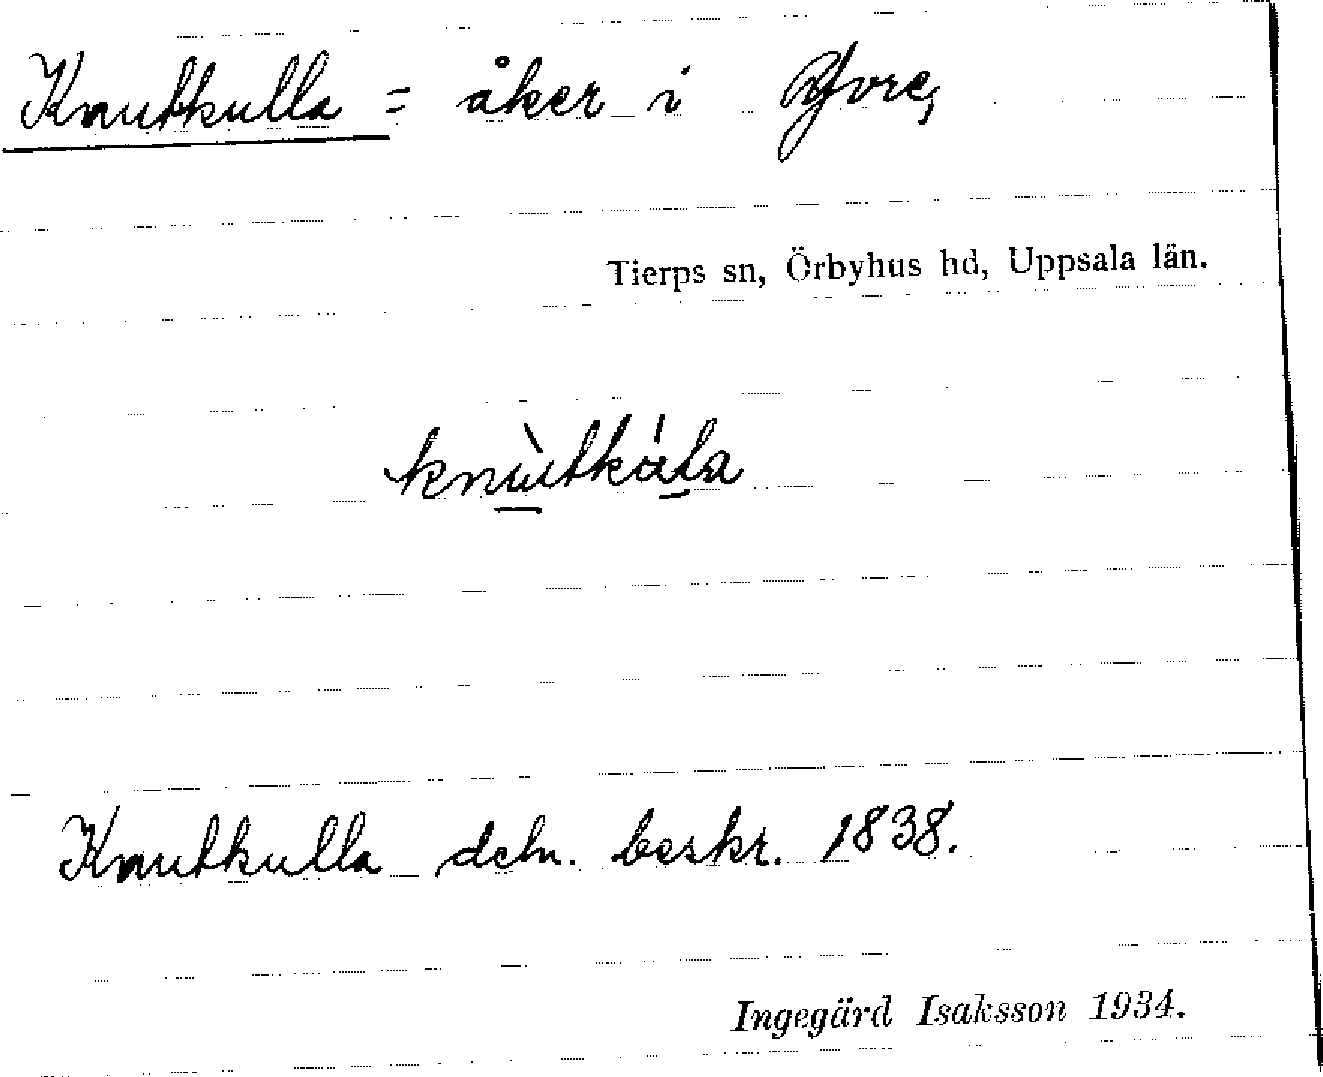 Knutkulla = åker i Yvre,
Tierps sn, Örbyhus hd, Uppsala län.
Knutkulla deln. beskr. 1838.
Ingegärd Isaksson 1934.